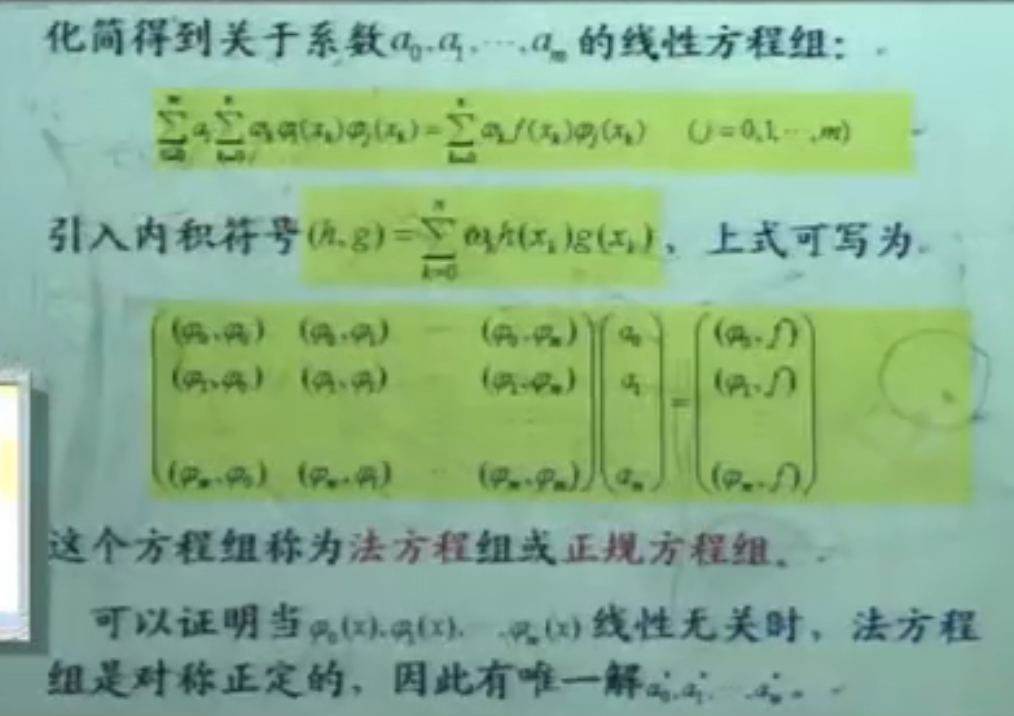 化简得到关于系数a₀,a₁,⋯,aₘ的线性方程组:
∑ᵢ₌₀ᵐ aᵢ ∑ₖ₌₀ⁿ ωₖφᵢ(xₖ)φⱼ(xₖ)=∑ₖ₌₀ⁿ ωₖf(xₖ)φⱼ(xₖ) (j=0,1,⋯,m)
引入内积符号(h,g)=∑ₖ₌₀ⁿ ωₖh(xₖ)g(xₖ),上式可写为
(φ₀,φ₀) (φ₀,φ₁) ⋯ (φ₀,φₘ) a₀ (φ₀,f)
(φ₁,φ₀) (φ₁,φ₁) (φ₁,φₘ) a₁ = (φ₁,f)
(φₘ,φ₀) (φₘ,φ₁) ⋯ (φₘ,φₘ) aₘ (φₘ,f)
这个方程组称为法方程组或正规方程组。
可以证明当φ₀(x),φ₁(x),⋯,φₘ(x)线性无关时,法方程
组是对称正定的,因此有唯一解a₀*,a₁*,⋯,aₘ*。